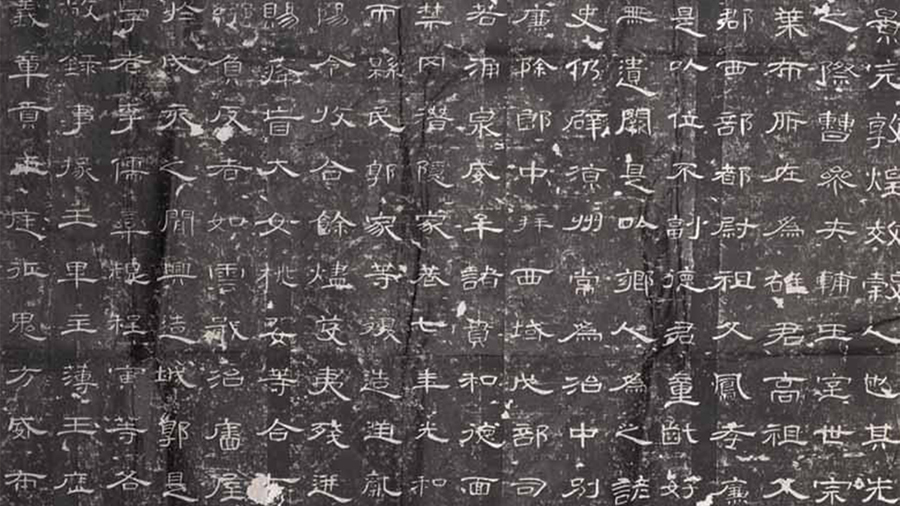 景完敦煌效穀人也其先
之際曹參夾輔王室世宗
葉布所在為雄君高祖父
郡西部都尉祖父鳳孝廉
是以位不副德君童齔好
無遺闕是以鄉人為之諺
史仍辟涼州常為治中別
廉除郎中拜西域戊部司
若涌泉威牟諸賁和德面
禁罔潛隱家巷七年光和
而縣民郭家等復造逆亂
陽令收合餘燼芟夷殘迸
賜瘖盲大女桃婓等合七
繈負反者如雲戢治廧屋
於戌亥之間興造城郭是
學者李儒欒規程寅等各
敞錄事掾王畢主薄王歷
義章貢王庭征鬼方威布